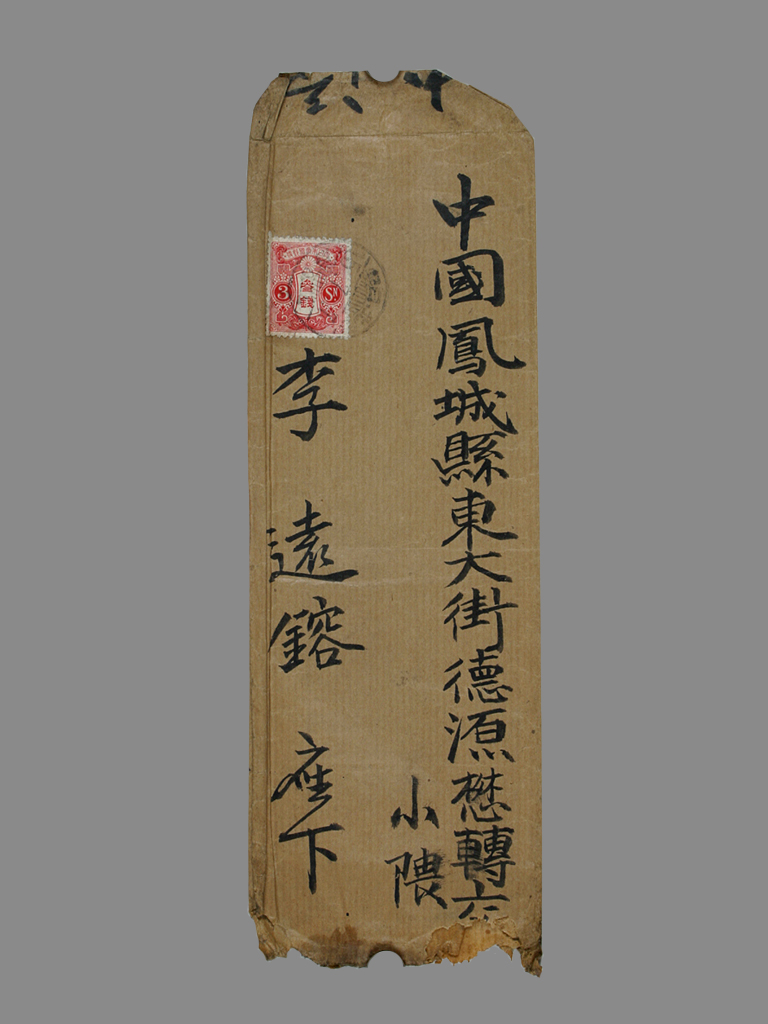 中國鳳城縣東大街德源懋轉交
小隈
李遠鎔座下
3 Sn
參銭